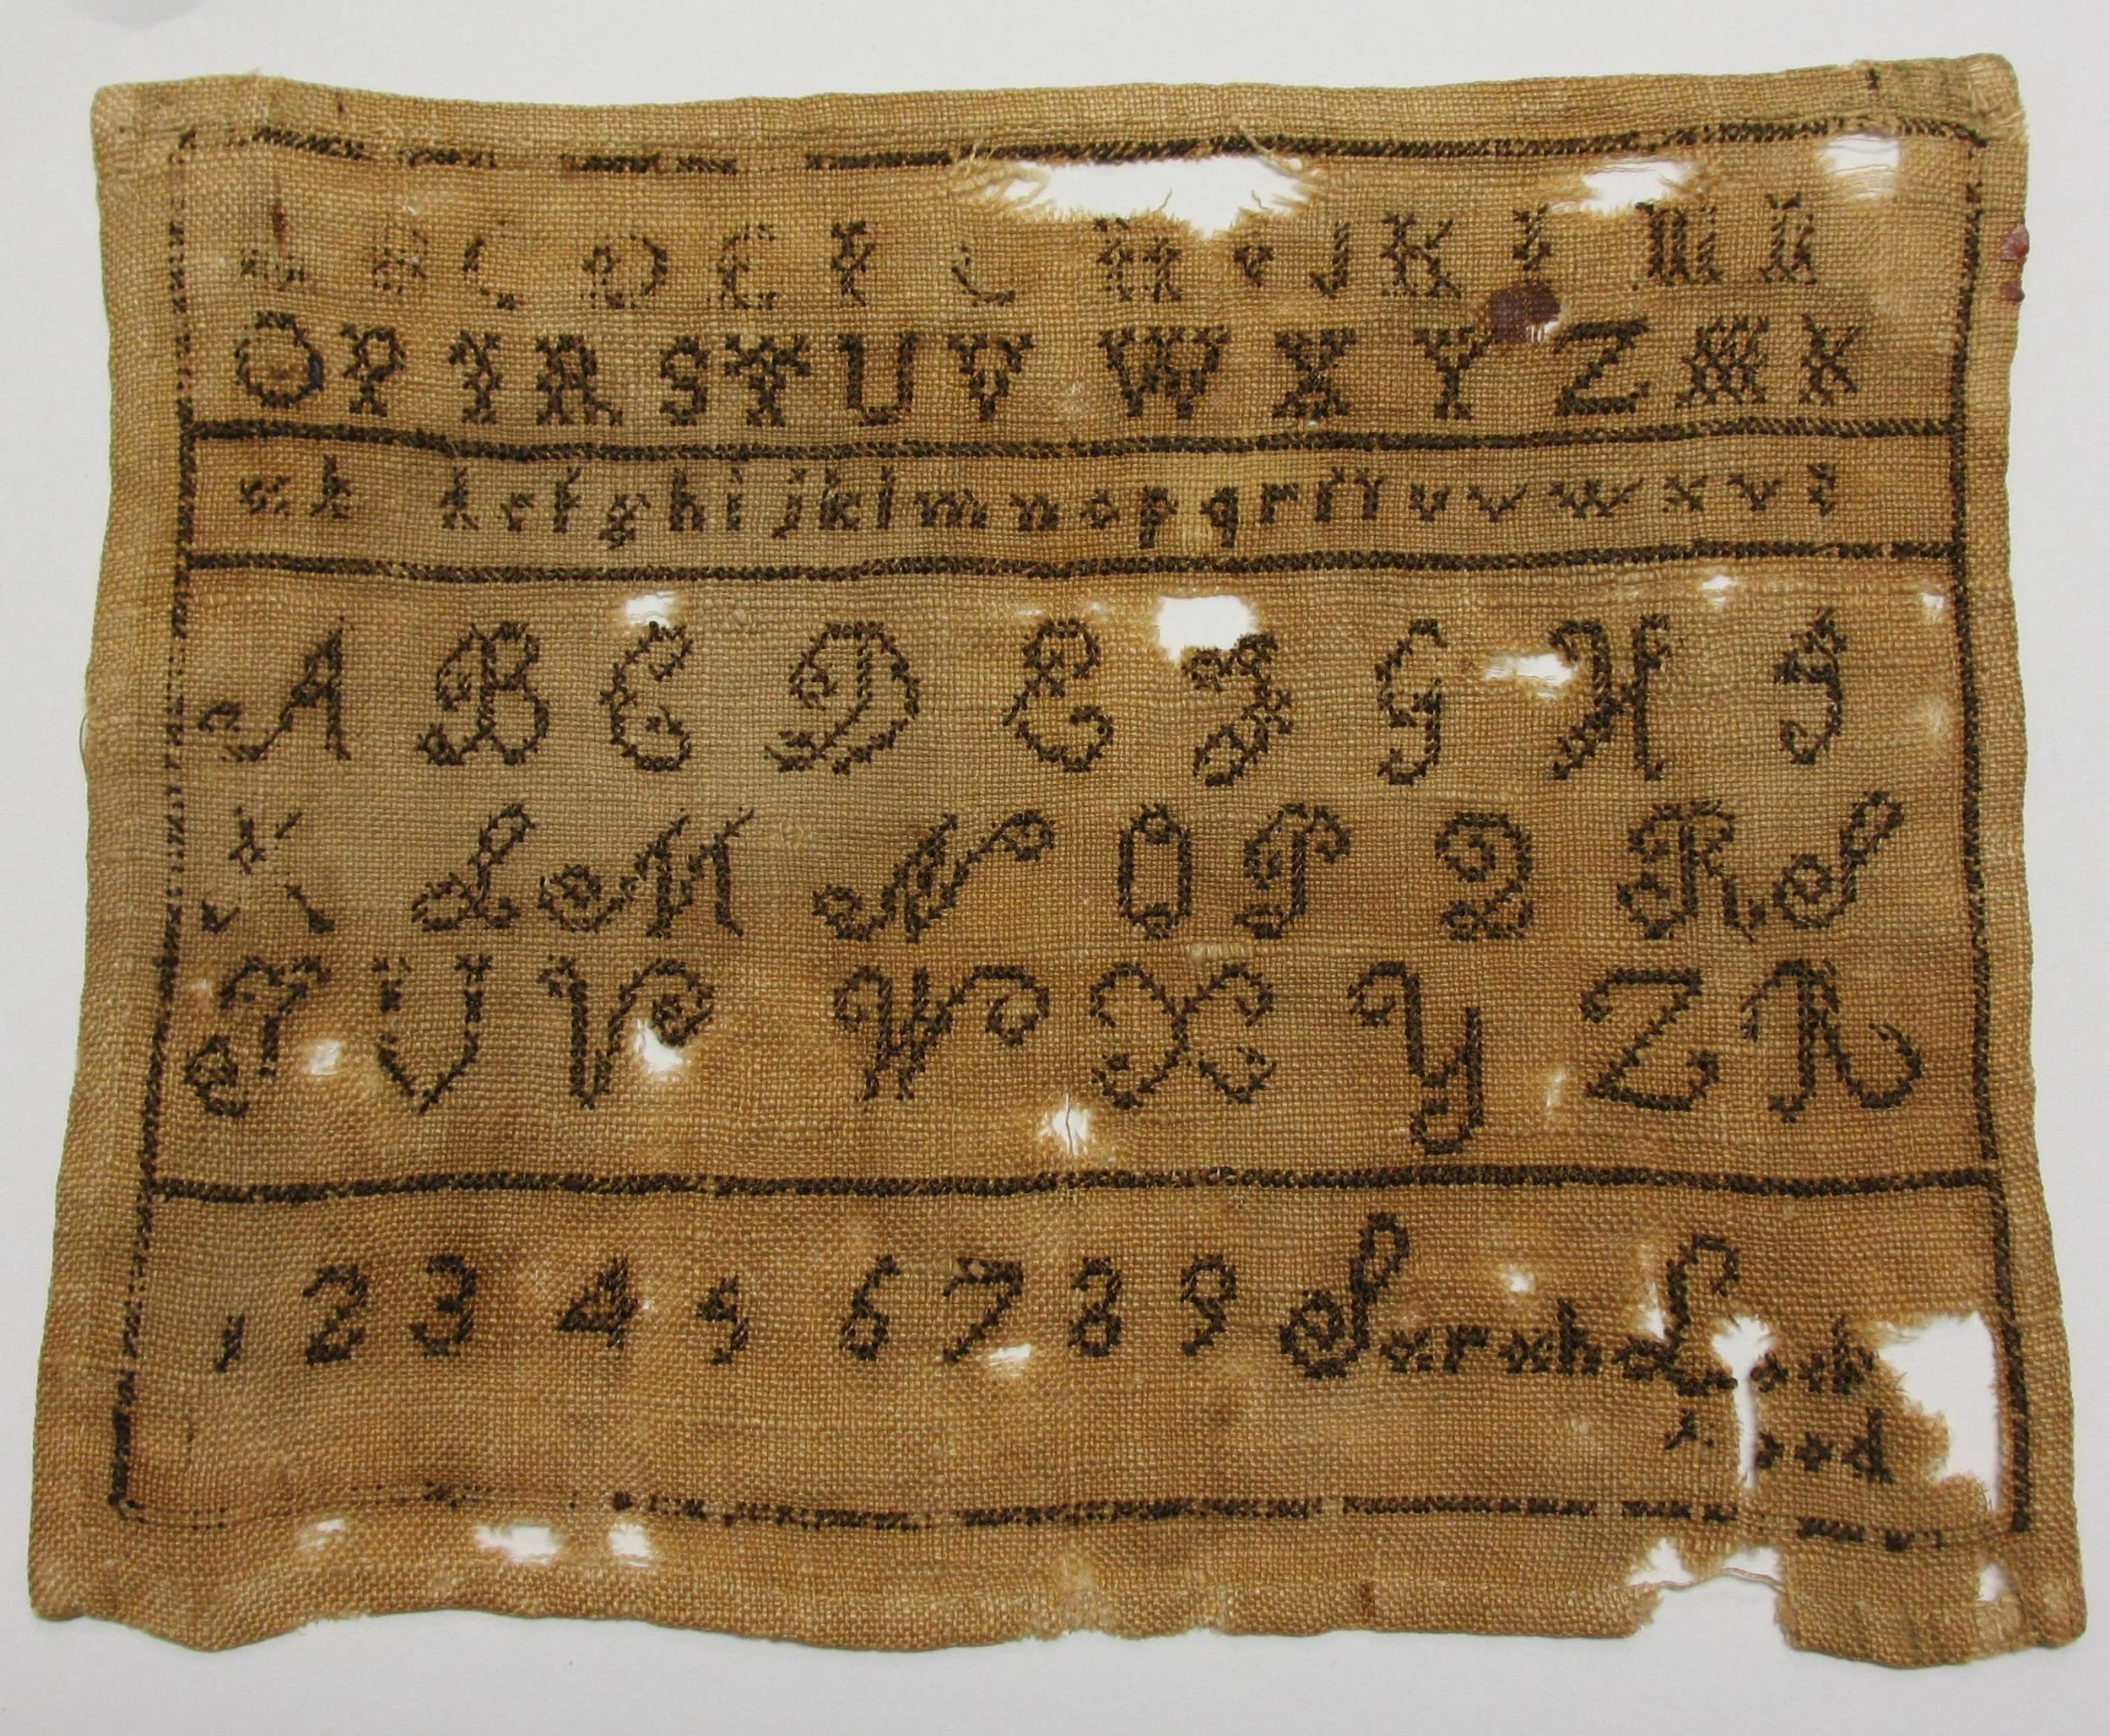 A B C D E F G H I J K L M N
O P Q R S T U V W X Y Z
a b d e f g h i j k l m n o p q r s t u v w x y z
A B C D E F G H I
K L M N O P Q R S
T U V W X Y Z
1 2 3 4 5 6 7 8 9 Sarah